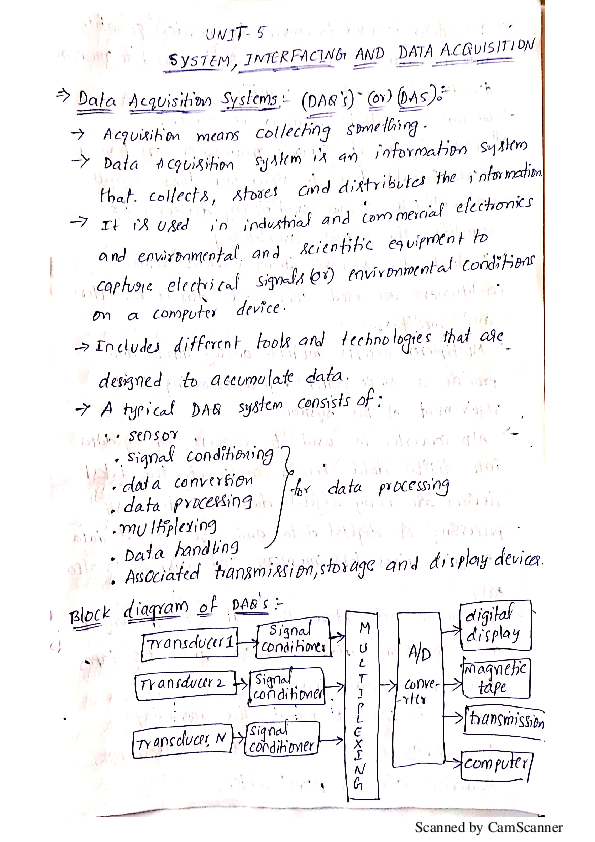 UNIT-5
SYSTEM, INTERFACING AND DATA ACQUISITION
⇒ Data Acquisition Systems:- (DAQ's) (or) (DAS):-
→ Acquisition means collecting something.
→ Data Acquisition System is an information system
that collects, stores and distributes the information
→ It is used in industrial and commercial electronics
and environmental and scientific equipment to
capture electrical signals (or) environmental conditions
on a computer device.
→ Includes different tools and technologies that are
designed to accumulate data.
→ A typical DAQ system consists of:
• sensor
• signal conditioning
• data conversion
• data processing
• multiplexing
• Data handling
for data processing
• Associated transmission, storage and display devices.
Block diagram of DAQ's:-
Transducer 1
Signal
conditioner
Transducer 2
Signal
conditioner
Transducer N
Signal
conditioner
MULTIPLEXING
A/D
conve-
rter
digital
display
magnetic
tape
transmission
computer
Scanned by CamScanner